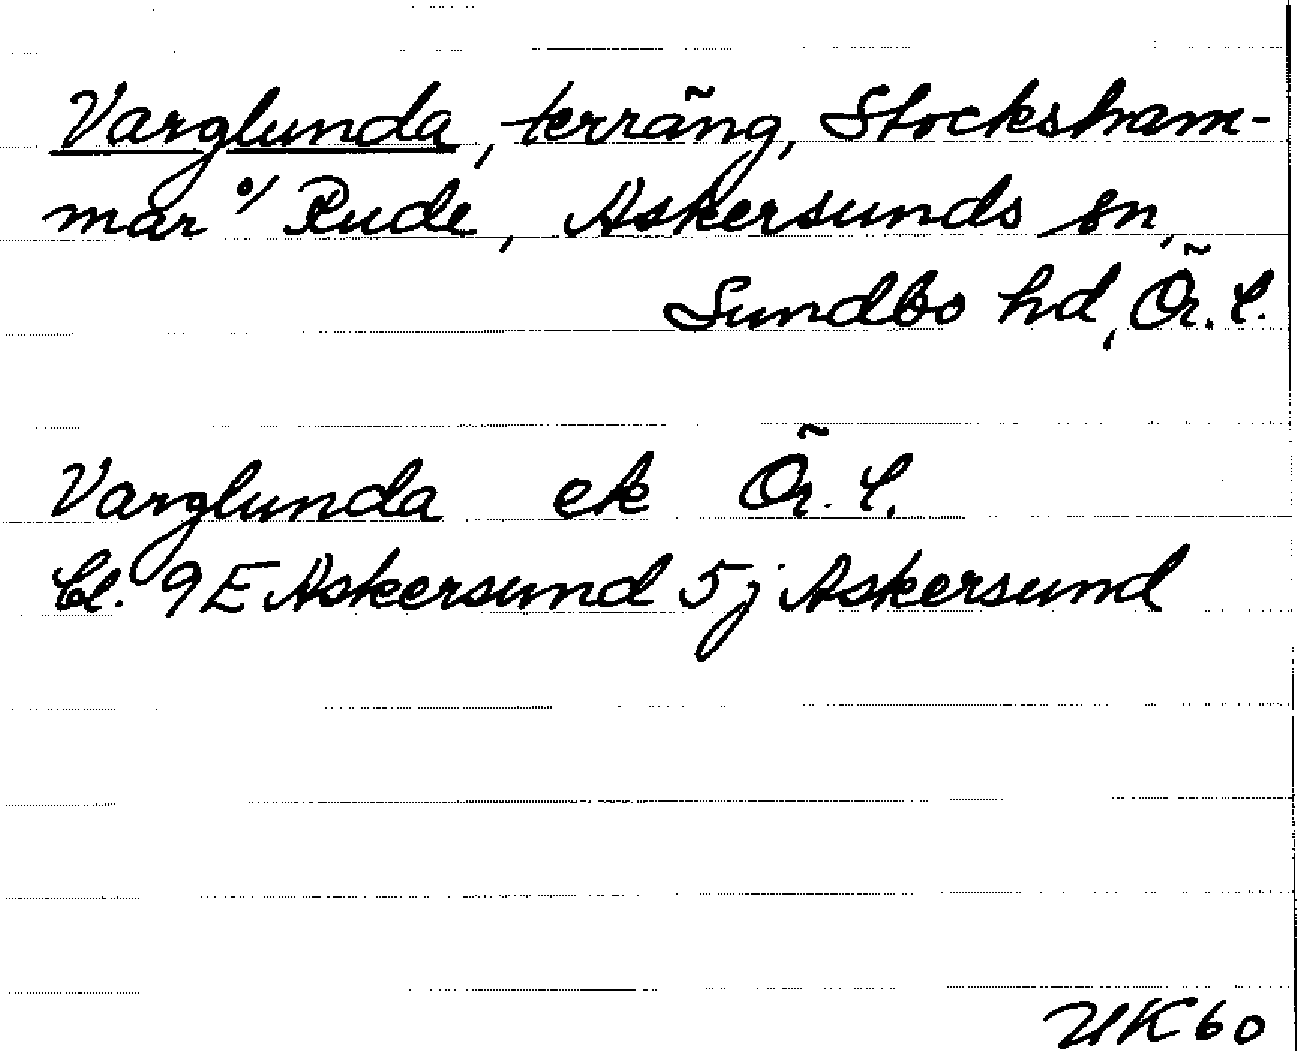 Varglunda, terräng, Stocksham-
mar o/ Rude, Askersunds sn,
Sundbo hd, Ör. l.
Varglunda ek Ör. l.
Bl. 9 E Askersund 5 j Askersund
UK 60